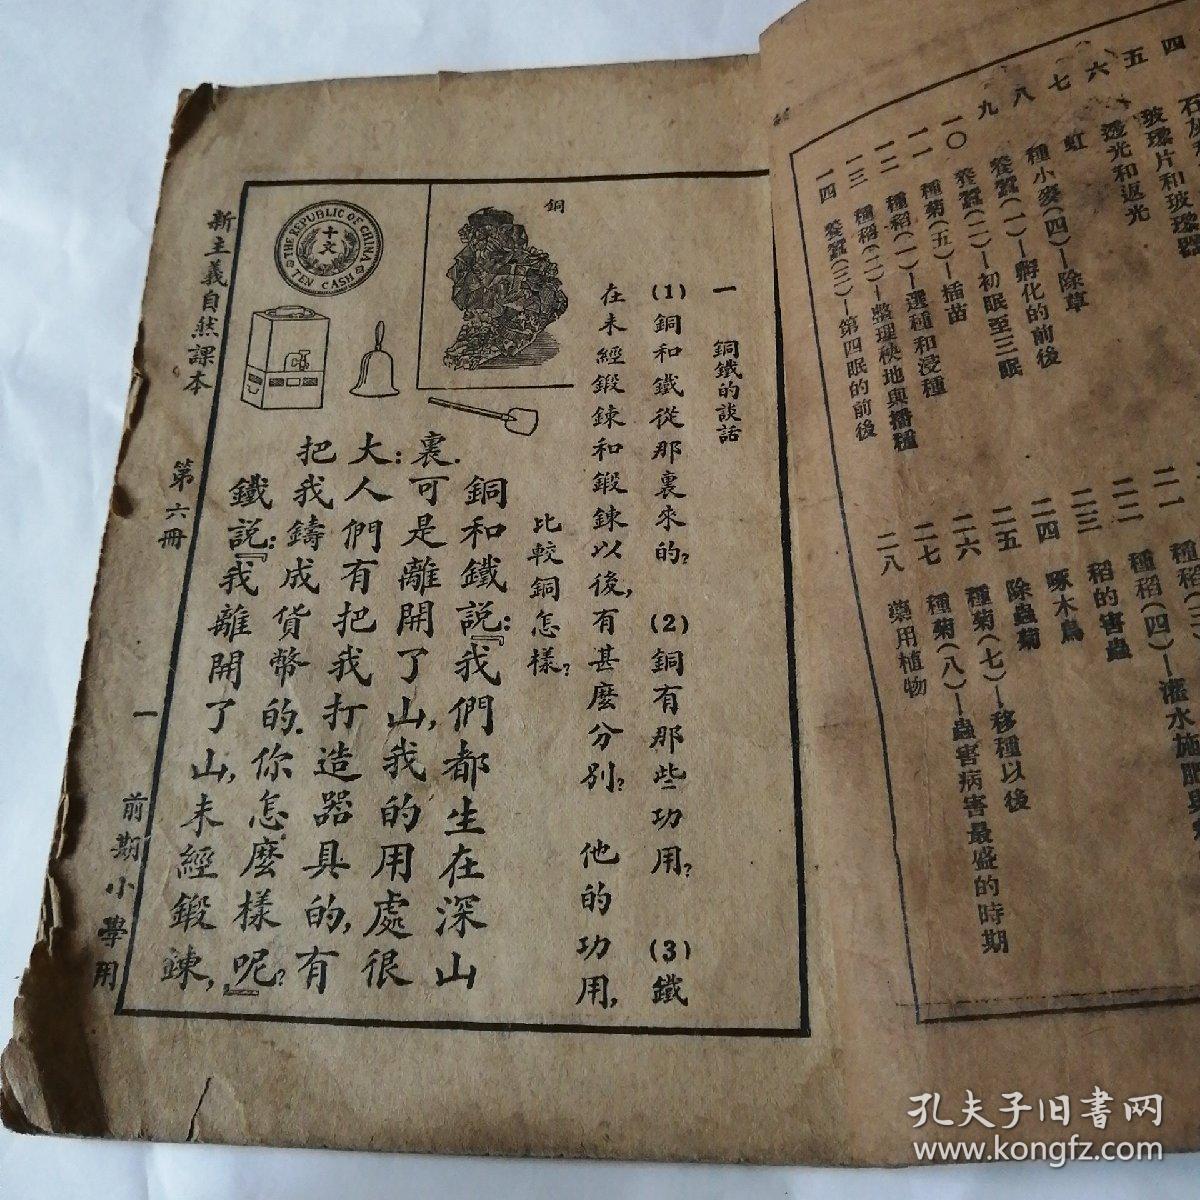 四
五
六
七
八
九
一〇
一一
一二
一三
一四
玻璃片和玻璃器
透光和返光
虹
種小麥(四)—除草
養蠶(一)—孵化的前後
養蠶(二)—初眠至三眠
種菊(五)—插苗
種稻(一)—選種和浸種
種稻(二)—整理秧地與播種
養蠶(三)—第四眠的前後
二一
種稻(三)
二二
種稻(四)—灌水施肥
二三
稻的害蟲
二四
啄木鳥
二五
除蟲菊
二六
種菊(七)—移種以後
二七
種菊(八)—蟲害病害最盛的時期
二八
藥用植物
一 銅鐵的談話
(1)銅和鐵從那裏來的? (2)銅有那些功用? (3)鐵
在未經鍛鍊和鍛鍊以後,有甚麼分別? 他的功用,
比較銅怎樣?
銅
THE REPUBLIC OF CHINA
十文
TEN CASH
銅和鐵說:『我們都生在深山
裏.可是離開了山,我的用處很
大:人們有把我打造器具的,有
把我鑄成貨幣的.你怎麼樣呢?』
鐵說:『我離開了山,未經鍛鍊,
新主義自然課本 第六冊 一 前期小學用
孔夫子旧書网
www.kongfz.com